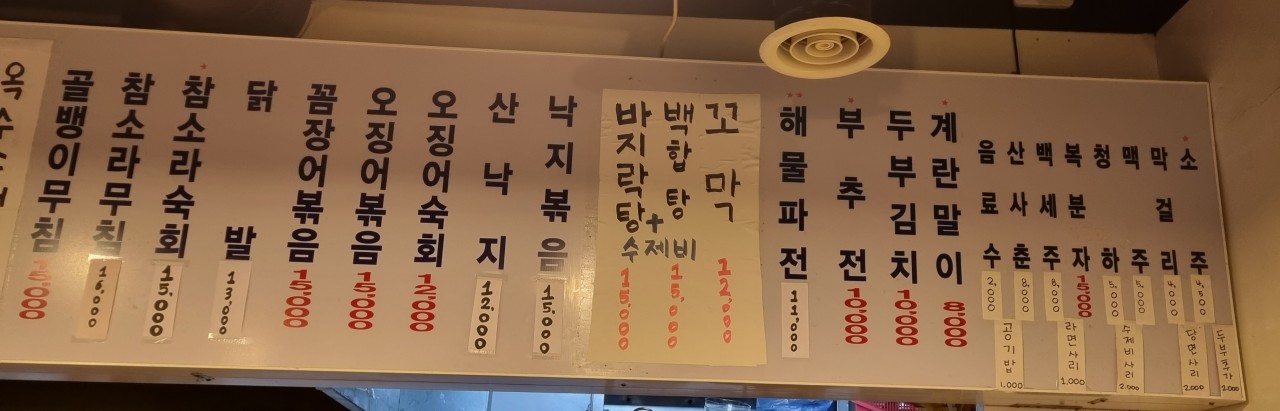 옥수수전
골뱅이무침 15,000
참소라무침 16,000
참소라숙회 15,000
닭발 13,000
꼼장어볶음 15,000
오징어볶음 15,000
오징어숙회 12,000
산낙지 12,000
낙지볶음 15,000
바지락탕 15,000
백합탕 15,000
+수제비
꼬막 12,000
해물파전 11,000
부추전 10,000
두부김치 10,000
계란말이 8,000
음료수 2,000
산사춘 8,000
백세주 8,000
복분자 15,000
청하 5,000
맥주 5,000
막걸리 4,000
소주 4,500
공기밥 1,000
라면사리 1,000
수제비사리 2,000
당면사리 2,000
두부추가 2,000